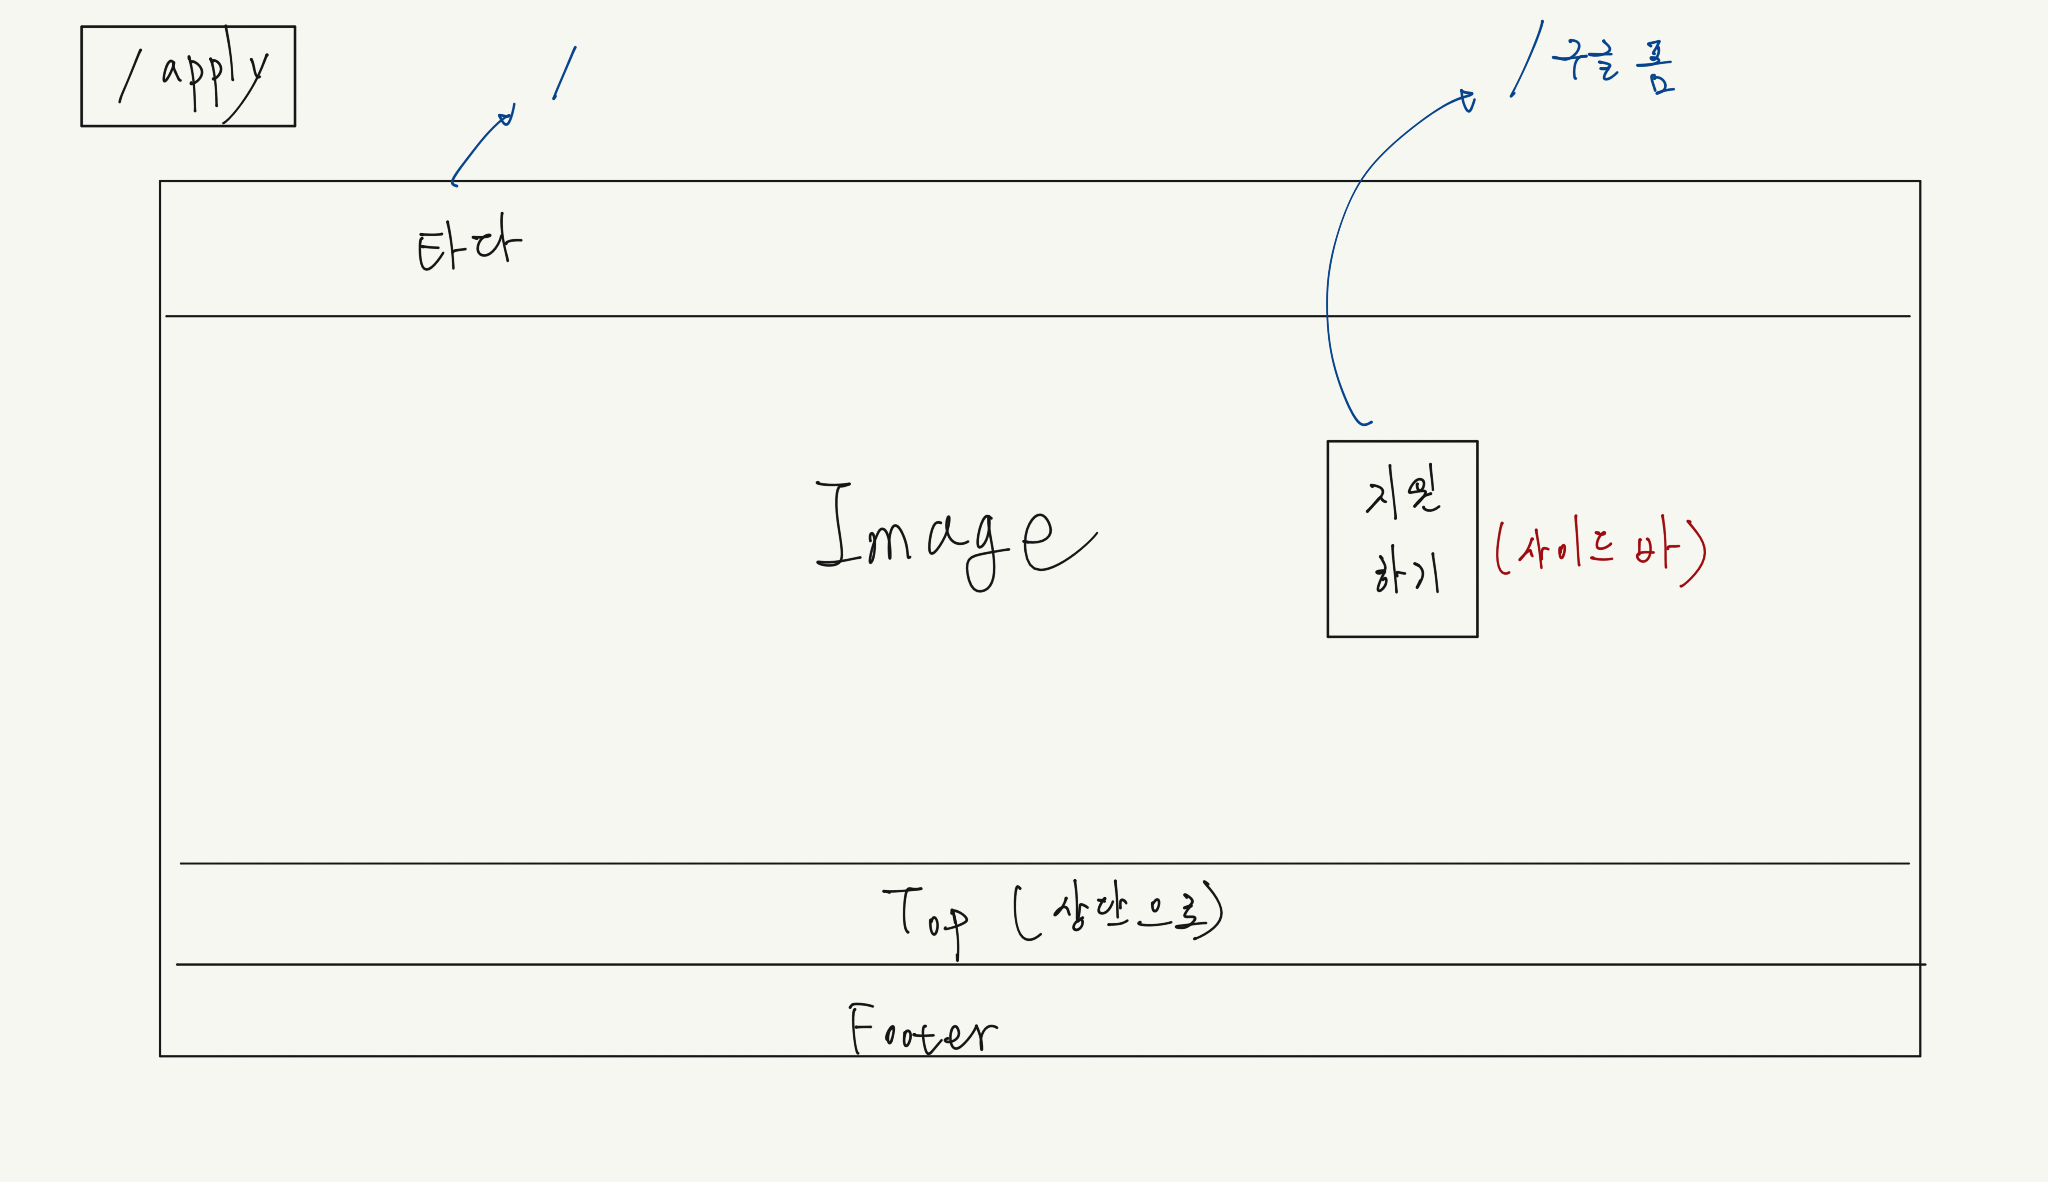 /apply
/
/구글 폼
타다
Image
지원
하기
(사이드 바)
Top (상단으로)
Footer